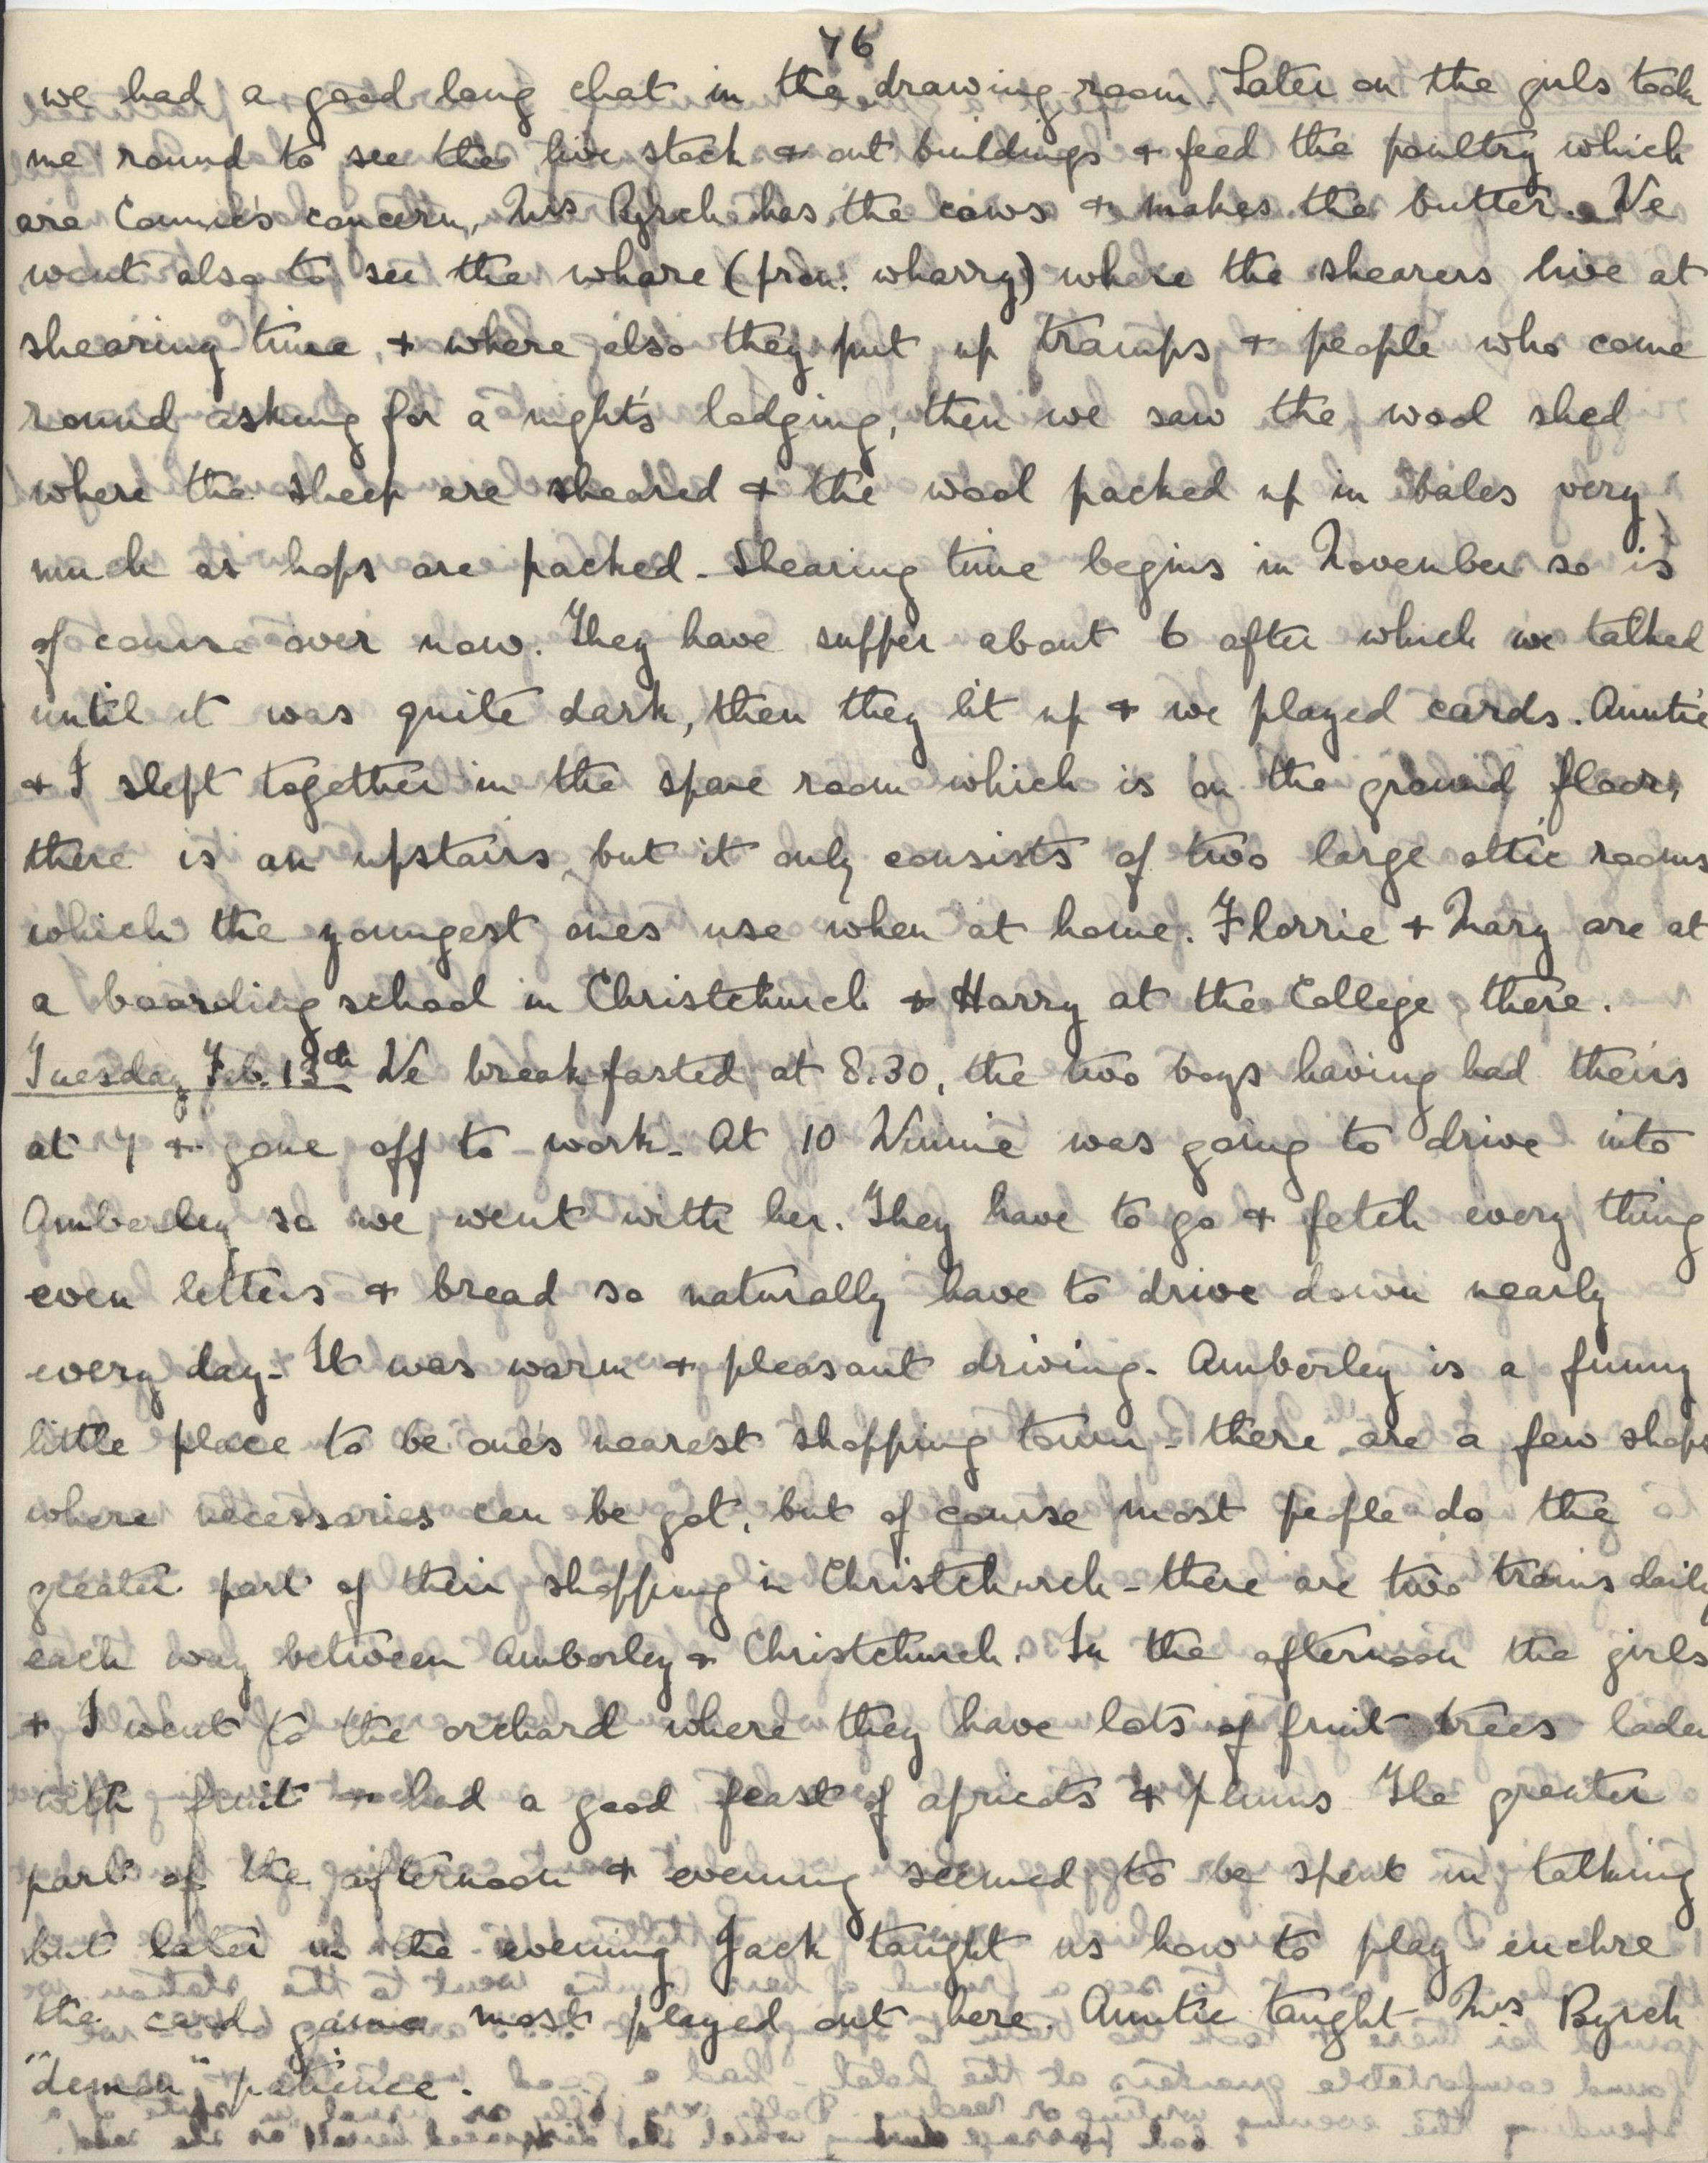 76
we had a good long chat in the drawing-room. Later on the girls took
me round to see the live stock + out buildings + feed the poultry which
are Connie's concern, Mrs Byrch has the cows + makes the butter. We
went also to see the whare (pron: wharry) where the shearers live at
shearing time + where also they put up tramps + people who come
round asking for a night's lodging, then we saw the wool shed
where the sheep are sheared + the wool packed up in bales very
much as hops are packed - Shearing time begins in November so is
of course over now. They have supper about 6 after which we talked
until it was quite dark, then they lit up + we played cards. Auntie
+ I slept together in the spare room which is on the ground floor,
there is an upstairs but it only consists of two large attic rooms
which the youngest ones use when at home. Florrie + Mary are at
a boarding school in Christchurch + Harry at the College there.
Tuesday Feb. 13th We breakfasted at 8.30, the two boys having had theirs
at 7 + gone off to work - At 10 Winnie was going to drive into
Amberley so we went with her. They have to go + fetch every thing
even letters + bread so naturally have to drive down nearly
every day - It was warm + pleasant driving - Amberley is a funny
little place to be one's nearest shopping town - there are a few shops
where necessaries can be got, but of course most people do the
greater part of their shopping in Christchurch - there are two trains daily
each way between Amberley + Christchurch. In the afternoon the girls
+ I went to the orchard where they have lots of fruit trees laden
with fruit + had a good feast of apricots + plums The greater
part of the afternoon + evening seemed to be spent in talking
but later in the evening Jack taught us how to play euchre
the card game most played out here. Auntie taught Mrs Byrch
"demon" patience.